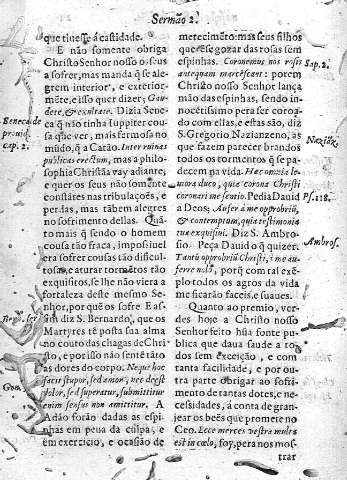 Sermão 2.
que tiuesse á castidade.
E não somente obriga
Christo Senhor nosso o seus
a sofrer, mas manda q̃ se alegrem
interior, e exteriormẽte,
e isso quer dizer; Gaudete,
& exultate. Dizia Seneca
q̃ não tinha Iuppiter cousa
que ver, mais fermosa no
múdo, q̃ a Catão. Inter ruinas
publicas erectum, mas a philosophia
Christãa vay adiante,
e quer os seus não somente
constãtes nas tribulações, e
perdas, mas tãbem alegres
no sofrimento dellas. Quãto
mais q̃ sendo o homem
cousa tão fraca, impossiuel
era sofrer cousas tão dificultosas,
e aturar tormẽtos tão
exquisitos, se lhe não viera a
fortaleza deste mesmo Senhor,
por quẽ os sofre. E assim
diz S. Bernardo, que os
Martyres tẽ posta sua alma
no couto das chagas de Christo,
e por isso não sentẽ tãto
as dores do corpo. Neque hoc
facit stupor, sed amor, nec deest
dolor, sed superatur, submittitur
enim sensus non amittitur. A
Adão forão dadas as espinhas
em pena da culpa, e
em exercicio, e ocasião de
Seneca de
prouid.
cap. 2.
merecimẽto: mas seus filhos
querẽ gozar das rosas sem
espinhas. Coronemus nos rosis
antequam marcescant: porem
Christo nosso Senhor lança
mão das espinhas, sendo innocẽtissimo
pera ser coroado
com ellas, e estas são, diz
S. Gregorio Nazianzeno, as
que fazem parecer brandos
todos os tormentos q̃ se padecem
na vida. Hac omnia lemora
duco, quia corona Christi
coronari me sentio. Pedia Dauid
a Deos; Aufer à me opprobriũ,
& contemptum, quia testimonia
tua exquisiui. Diz S. Ambrosio.
Peça Dauid o q̃ quizer.
Tantũ opprobriũ Christi, à me auferre
noli, porq̃ com tal exẽplo
todos os agros da vida
me ficarão faceis, e suaues.
Quanto ao premio, verdes
hoje a Christo nosso
Senhor feito hũa fonte publica
que daua saude a todos
sem exceição, e com
tanta facilidade, e por outra
parte obrigar ao sofrimento
de tantas dores, e necessidades,
á conta de granjear
os beẽs que promete no
Ceo. Ecce merces vestra multa
est in cœlo, foy, pera nos mostrar
Sap. 2.
Naziãz.
Ps. 118.
Ambros.